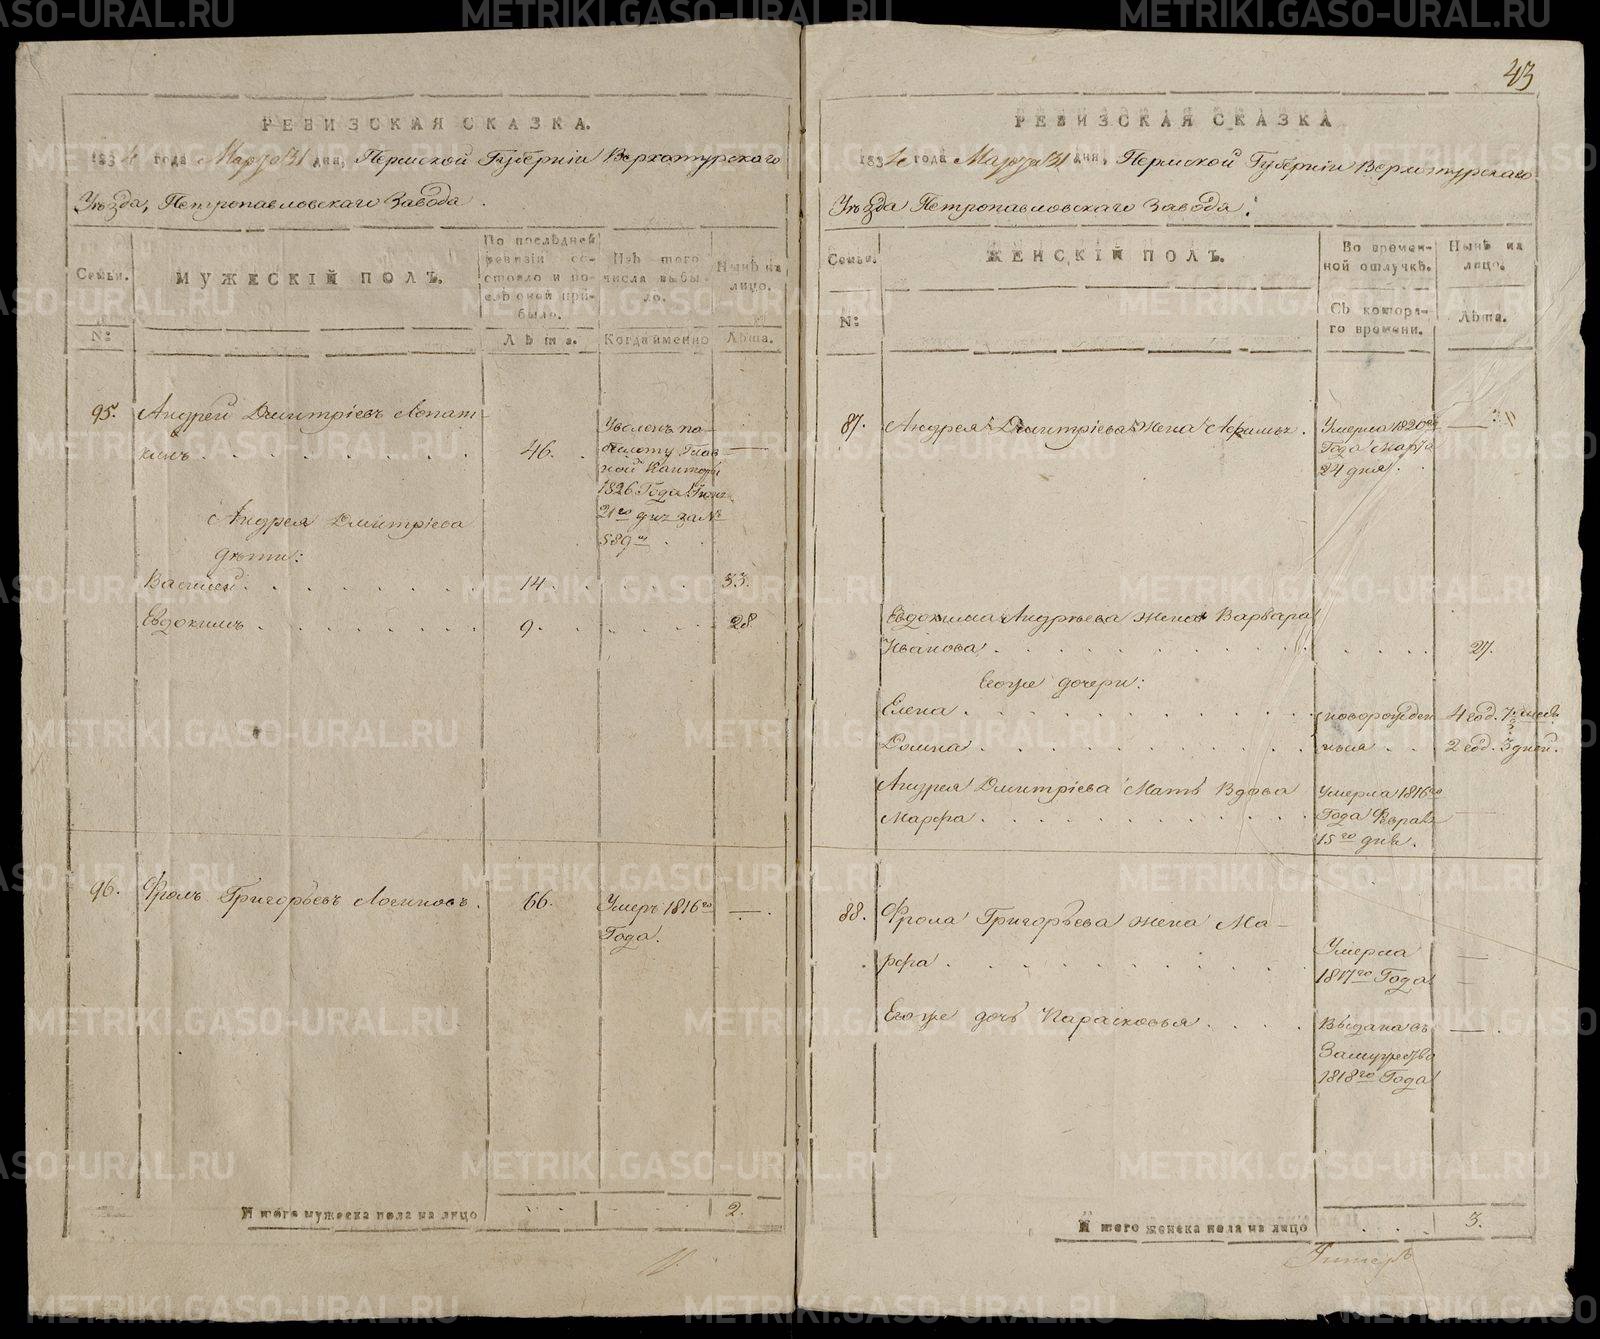 43
РЕВИЗСКАЯ СКАЗКА.
1834 года Марта 31 дня, Пермской Губернiи Верхотурскаго
Уѣзда, Петропавловскаго Завода.
Семьи.
№:
МУЖЕСКIЙ ПОЛЪ.
По послѣдней
ревизiи со-
стояло и по-
слѣ оной при-
было.
Лѣта.
Изъ того
числа выбы-
ло.
Когда именно
Нынѣ на
лицо.
Лѣта.
95.
Андрей Дмитрiевъ Лопат-
кинъ
46.
Уволенъ по
билету Глав
ной Канторы
1826 Года
21го дня за №
589м
Андрея Дмитрiева
дѣти:
Василей
14.
33.
Евдокимъ
9.
28
96.
Фролъ Григорьевъ Логиновъ.
66.
Умеръ 1816го
Года.
Итого мужеска пола на лицо
2.
РЕВИЗСКАЯ СКАЗКА
1834 года Марта 31 дня, Пермской Губернiи Верхотурскаго
Уѣзда Петропавловскаго Завода.
Семьи.
№:
ЖЕНСКIЙ ПОЛЪ.
Во времен-
ной отлучкѣ.
Съ котора-
го времени.
Нынѣ на
лицо.
Лѣта.
87.
Андрея Дмитрiева жена
Умерла 1820го
Года Марта
24 дня.
Евдокима Андрѣева жена Варвара
Иванова
27.
Егоже дочери:
Елена
новорожден
4 год. 7 месе.
Домна
ныя
2 год. 3 дней.
Андрея Дмитрiева Мать Вдова
Марфа
Умерла 1816го
Года Февраля
15го дня.
88.
Фрола Григорьева жена Ма-
рфа
Умерла
1817го Года
Егоже дочь Парасковья
Выдана въ
Замужество
1818го Года
Итого женска пола на лицо
3.
METRIKI.GASO-URAL.RU